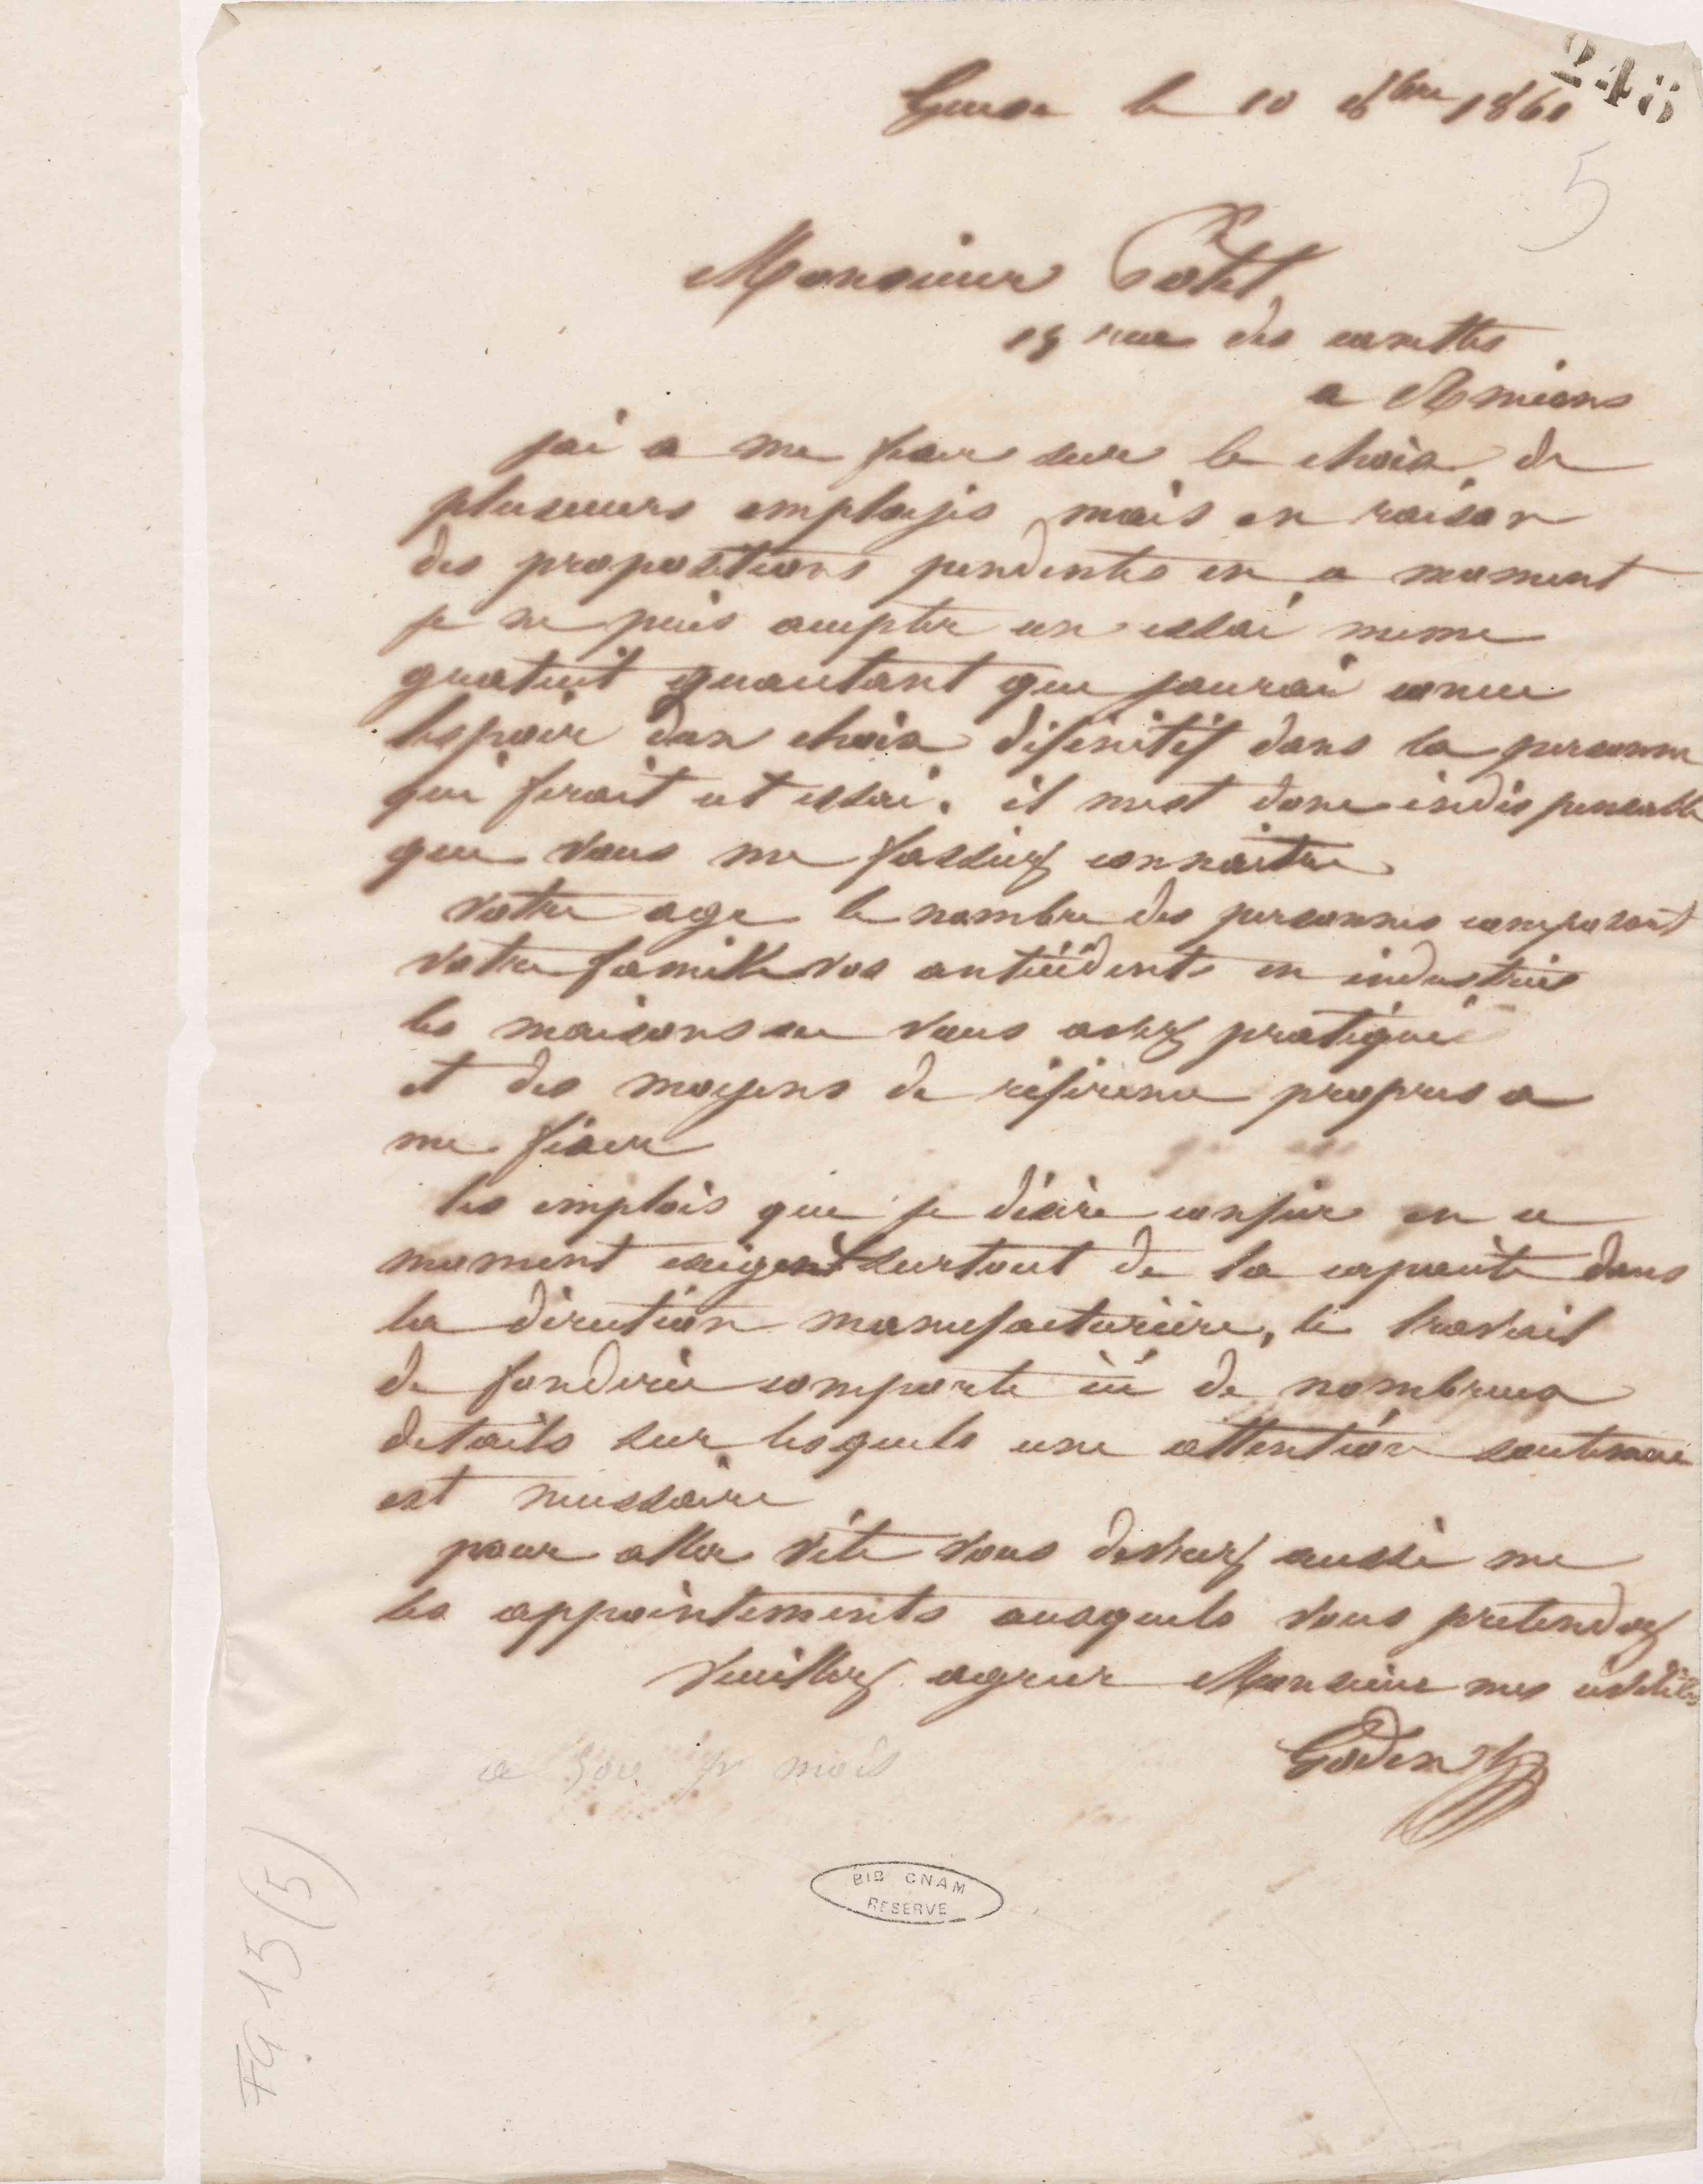 248
Guise le 10 8bre 1860
5
Monsieur Potel
19 rue des
a Amiens
jai a me fixer sur le choix de
plusieurs employés mais en raison
des propositions pendentes en ce moment
je ne puis accepter un essai meme
gratuit quautant que jaurai concu
lespoir dun choix difenitif dans la personne
qui ferait cet essai. il mest donc indispensable
que vous me fassiez connaitre
votre age le nombre des personnes composant
votre famille vos antécédents en industrie
les maisons ou vous avez pratiqué
et des moyens de réference propres a
me fixer
les emplois que je désire confier en ce
moment exigent surtout de la capacité dans
la direction manufacturière, le travail
de fonderie comporte ici de nombreux
details sur lesquels une attention soutenue
est necessaire
pour aller vite vous devrez aussi me
les appointements auxquels vous pretendez
Veuillez agreer Monsieur mes civilités
Godin
mois
BIB CNAM
RESERVE
FG 15 (5)